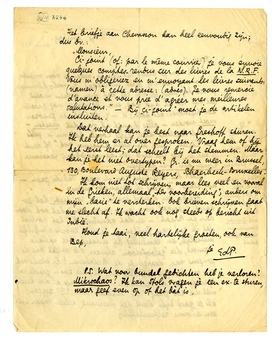 Het briefje aan Chevasson kan heel eenvoudig zijn;
dus bv.:
Monsieur,
Ci-joint (of: par le même courrier) je vous envoie
quelques comptes rendus sur des livres de la N.R.F.
Vous m'obligeriez en m'envoyant les livres suivants
(namen) à cette adresse: (adres). Je vous remercie
d'avance et vous prie d'agréer mes meilleures
salutations". — Bij ci-joint moet je de artikelen
insluiten.
Dat verhaal kan je best naar Greshoff sturen.
Ik heb hem er al over gesproken. Vraag hem of hij
het eerst leest; dat scheelt bij het stemmen. Maar
kan je het niet overtypen? Gr. is nu weer in Brussel,
130, Boulevard Auguste Reyers, Schaerbeek-Bruxelles.
Ik kan niet tot schrijven, maar lees veel en vooral
in de Grieken, allemaal "ter voorbereiding", anders om
mijn "basis" te versterken. Ook brieven schrijven gaat
me slecht af. Ik wacht ook nog steeds op bericht uit
Indië.
Houd je taai, veel hartelijke groeten, ook van
Bep,
je EdP.
P.S. Wat voor bundel gedichten heb je verloren?
Microchaos? Ik kan Stols vragen je een ex. te sturen
maar geef even op of het dat is.